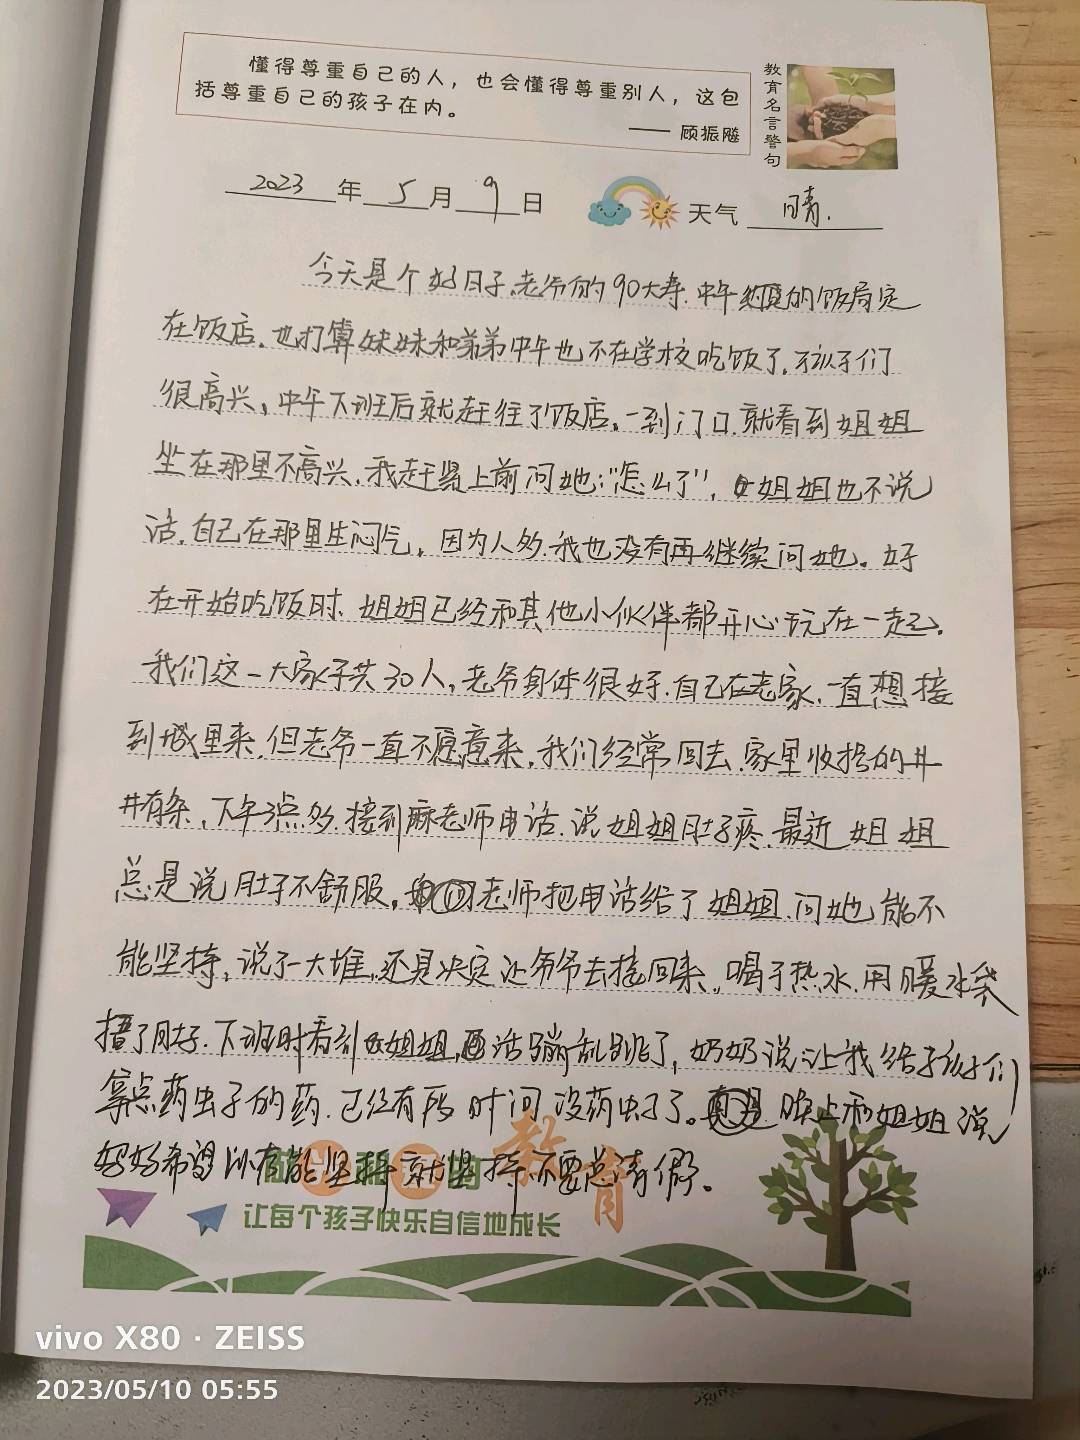 懂得尊重自己的人，也会懂得尊重别人，这包
括尊重自己的孩子在内。
—— 顾振飚
教育名言警句
2023年5月9日
天气 晴.
今天是个好日子、老爷的90大寿.中午的饭局定
在饭店.也打算妹妹和弟弟中午也不在学校吃饭了.孩子们
很高兴、中午下班后就赶往了饭店。一到门口.就看到姐姐
坐在那里不高兴.我赶紧上前问她:"怎么了".姐姐也不说
话.自己在那里生闷气。因为人多.我也没有再继续问她。好
在开始吃饭时.姐姐已经和其他小伙伴都开心玩在一起。
我们这一大家子共30人,老爷身体很好.自己在老家.一直想接
到城里来.但老爷一直不愿意来,我们经常回去.家里收拾的井
井有条.下午3点多.接到麻老师电话.说姐姐肚子疼.最近姐姐
总是说肚子不舒服,老师把电话给了姐姐.问她能不
能坚持,说了一大堆.还是决定让爷爷去接回来.喝了热水.用暖水袋
捂了肚子.下班时看到姐姐,活蹦乱跳了,奶奶说让我给孩子们
拿点药虫子的药.已经有段时间没药虫子了。晚上和姐姐说
好好希望以后能坚持就坚持不要总请假。
教育
让每个孩子快乐自信地成长
vivo X80 · ZEISS
2023/05/10 05:55